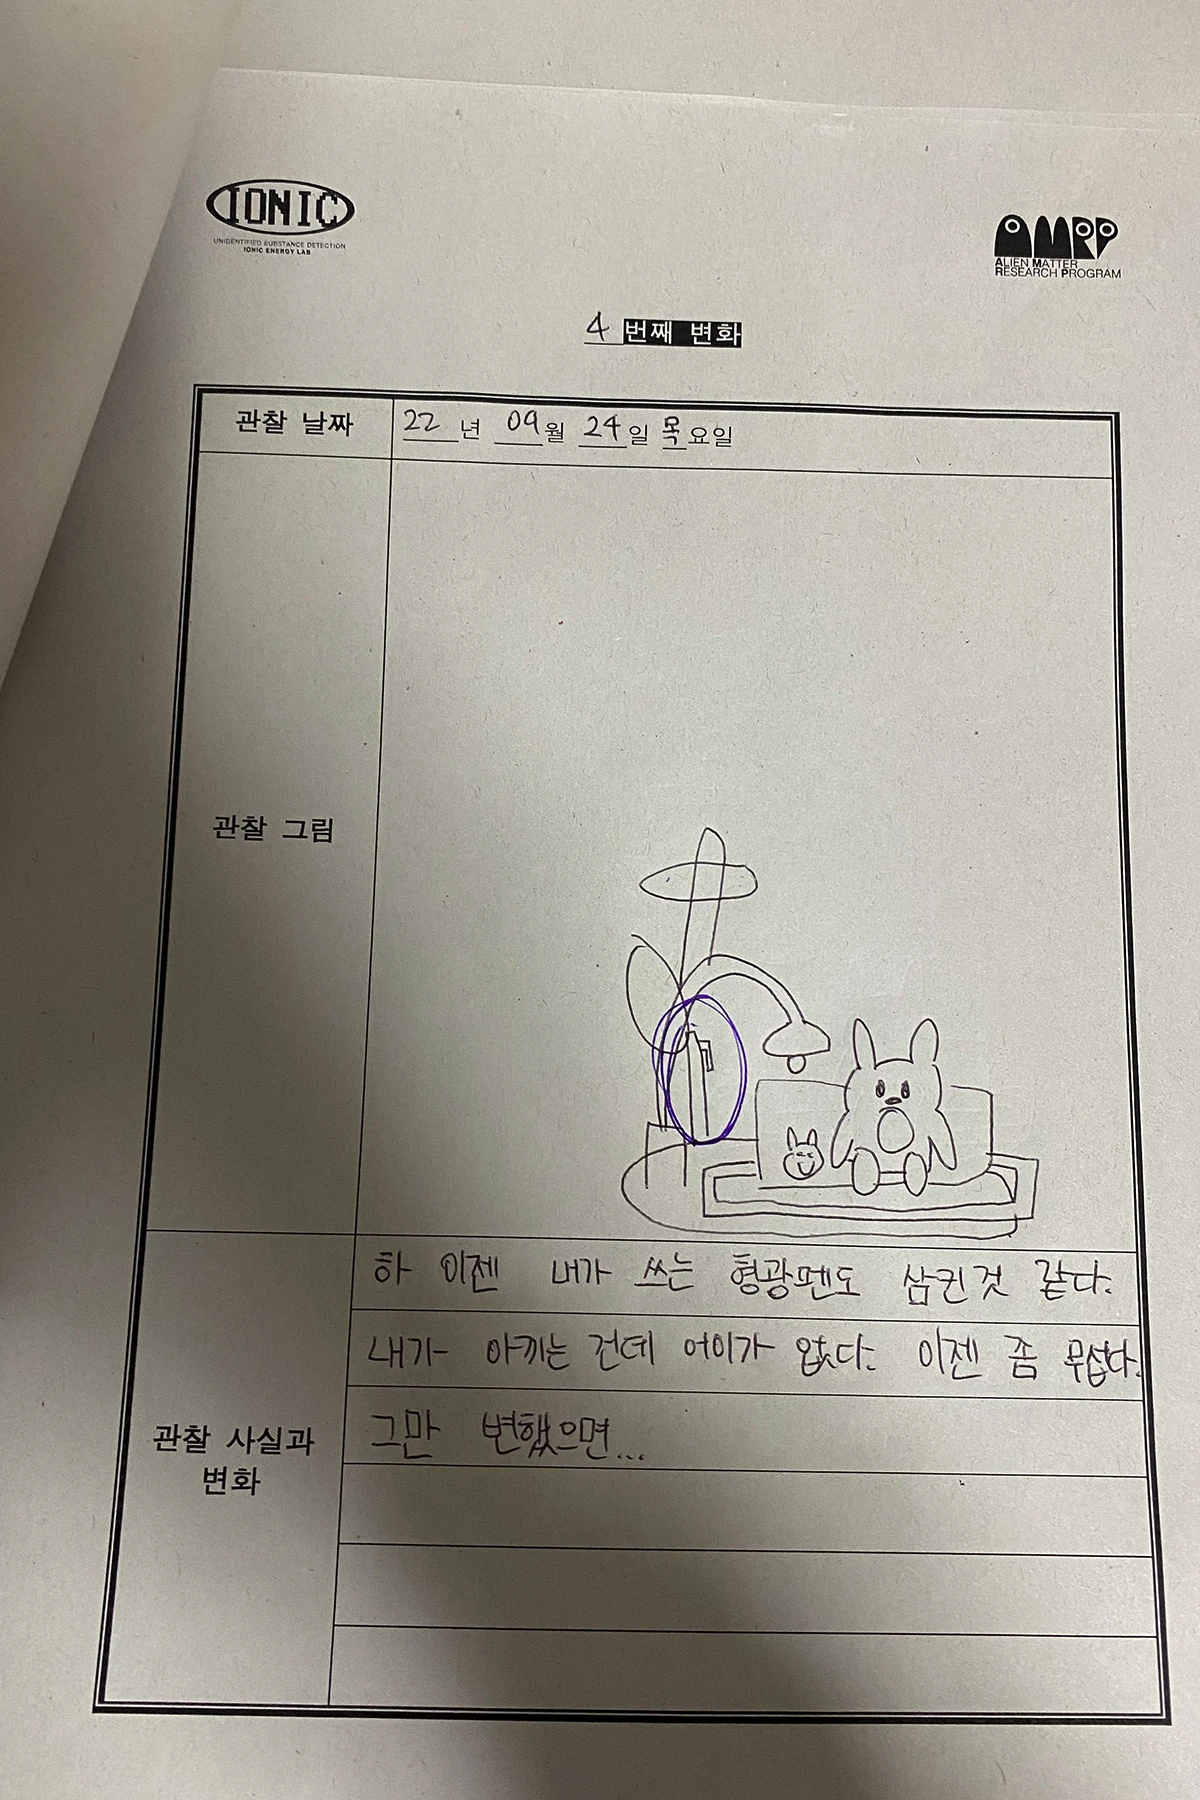 IONIC
UNIDENTIFIED SUBSTANCE DETECTION
IONIC ENERGY LAB
AMRP
ALIEN MATTER
RESEARCH PROGRAM
4 번째 변화
관찰 날짜
22 년 09월 24일 목요일
관찰 그림
관찰 사실과
변화
하 이젠 내가 쓰는 형광펜도 삼킨것 같다.
내가 아끼는 건데 어이가 없다. 이젠 좀 무섭다.
그만 변했으면...